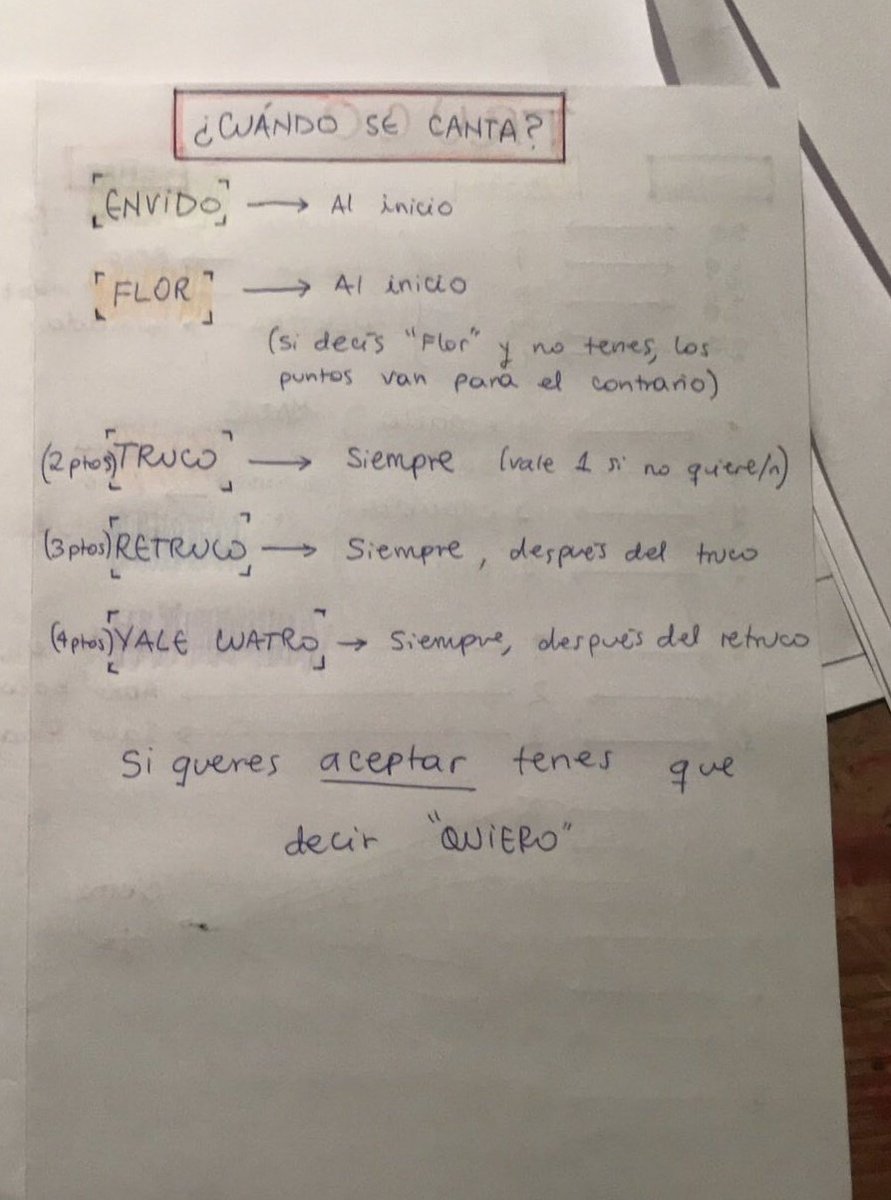 ¿CUÁNDO SE CANTA?
ENVIDO → Al inicio
FLOR → Al inicio
(si decís "Flor" y no tenes, los
puntos van para el contrario)
(2 ptos) TRUCO → Siempre (vale 1 si no quiere/n)
(3 ptos) RETRUCO → Siempre, después del truco
(4 ptos) VALE CUATRO → Siempre, después del retruco
Si queres aceptar tenes que
decir "QUIERO"